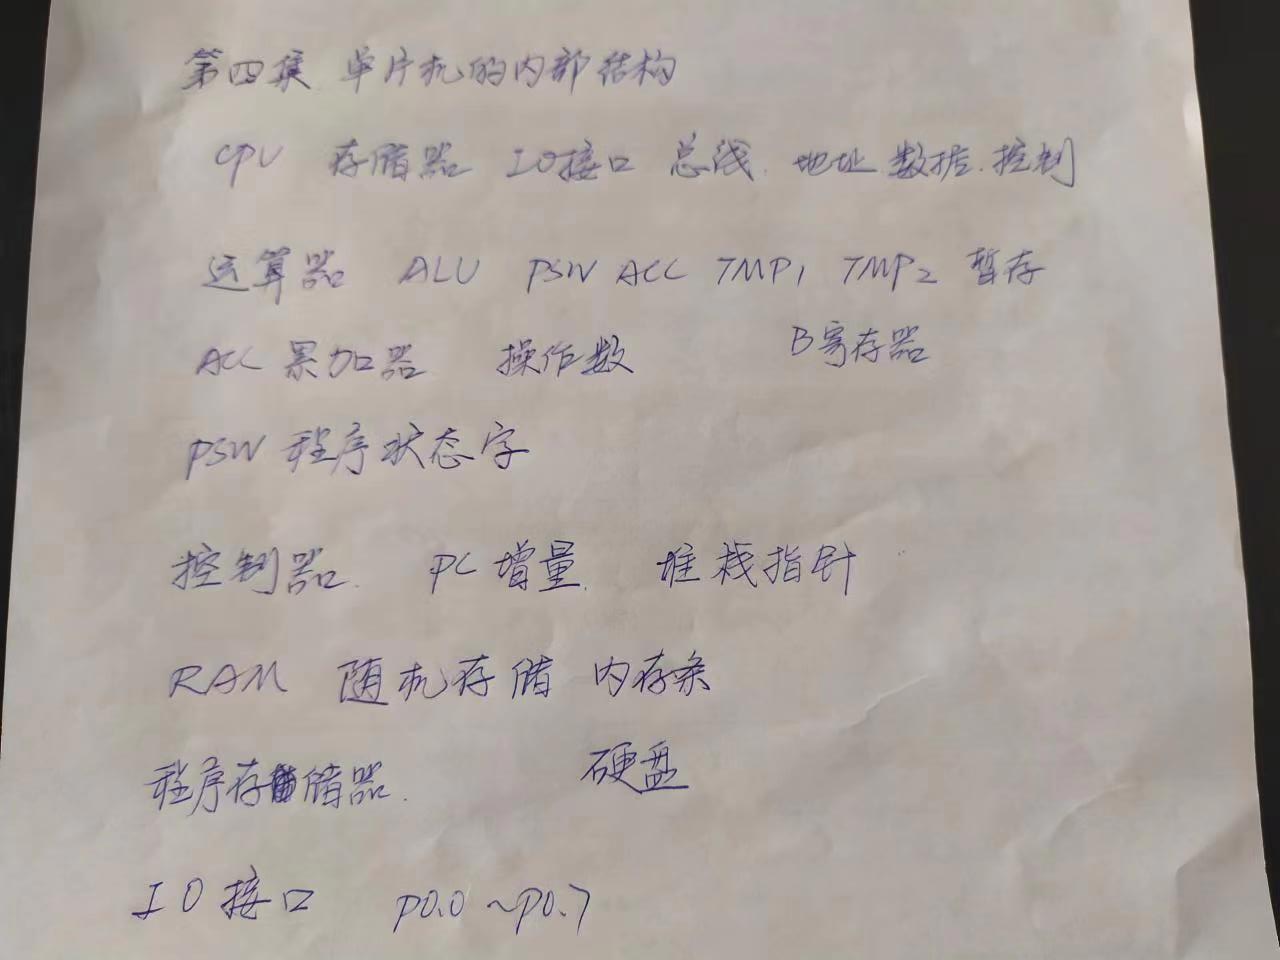 第四集 单片机的内部结构
CPU 存储器 IO接口 总线. 地址.数据.控制
运算器 ALU PSW ACC TMP1 TMP2 暂存
ACC 累加器 操作数 B寄存器
PSW 程序状态字
控制器. PC增量. 堆栈指针
RAM 随机存储 内存条
程序存储器. 硬盘
IO接口 P0.0~P0.7